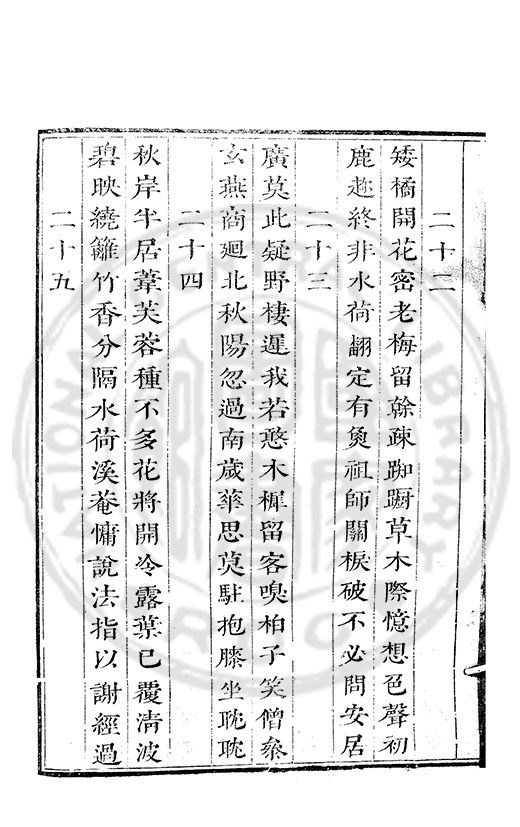 二十二
矮橘開花密老梅留榦疎踟蹰草木際憶想色聲初
鹿趂終非水荷翻定有魚祖師關棙破不必問安居
二十三
廣莫此疑野棲遲我若憨木樨留客嗅柏子笑僧叅
玄燕商廻北秋陽忽過南歲華思莫駐抱膝坐耽耽
二十四
秋岸半居葦芙蓉種不多花將開冷露葉已覆淸波
碧映繞籬竹香分隔水荷溪菴慵說法指以謝經過
二十九
LIBRARY